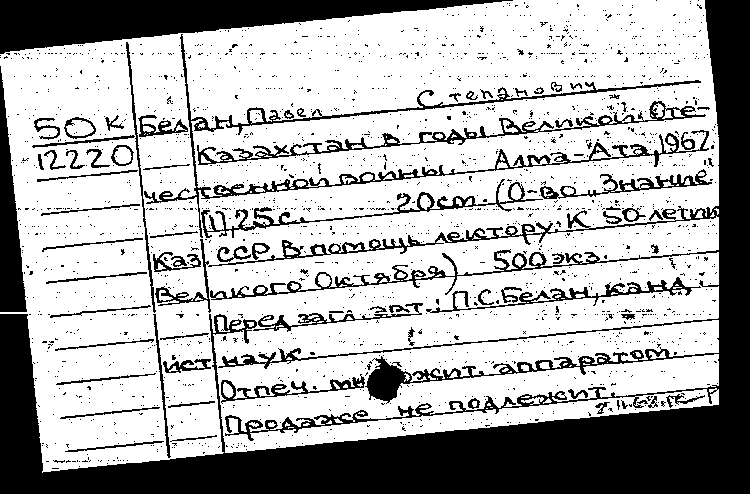 Степанович
50к Белан, Павел
12220 Казахстан в годы Великой Оте-
чественной войны. Алма-Ата, 1967.
[1], 25 с. 20 cm. (О-во „Знание"
Каз. ССР. В помощь лектору. К 50-летию
Великого Октября). 500 экз.
Перед загл. авт.: П.С. Белан, канд.
ист. наук.
Отпеч. множит. аппаратом.
Продаже не подлежит.